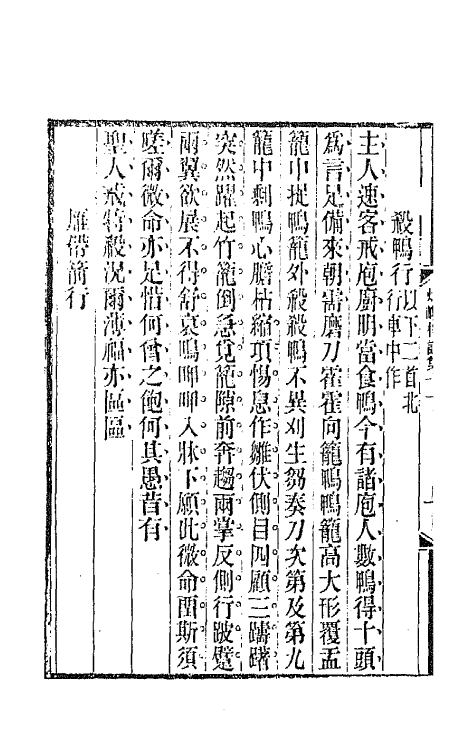 殺鴨行以下二首北行車中作
主人速客戒庖廚明當食鴨今有諸庖人數鴨得十頭
爲言足備來朝需磨刀霍霍向籠鴨鴨籠高大形覆盂
籠中捉鴨籠外殺殺鴨不異刈生芻奏刀次第及第九
籠中剩鴨心膽枯縮項惕息作雛伏側目四顧三躊躇
突然躍起竹籠倒急覓籠隙前奔趨兩掌反側行跛躄
兩翼欲展不得舒哀鳴呷呷入牀下願此微命畱斯須
嗟爾微命亦足惜何曾之飽何其愚昔有
聖人戒特殺況爾薄福亦區區
雁帶箭行